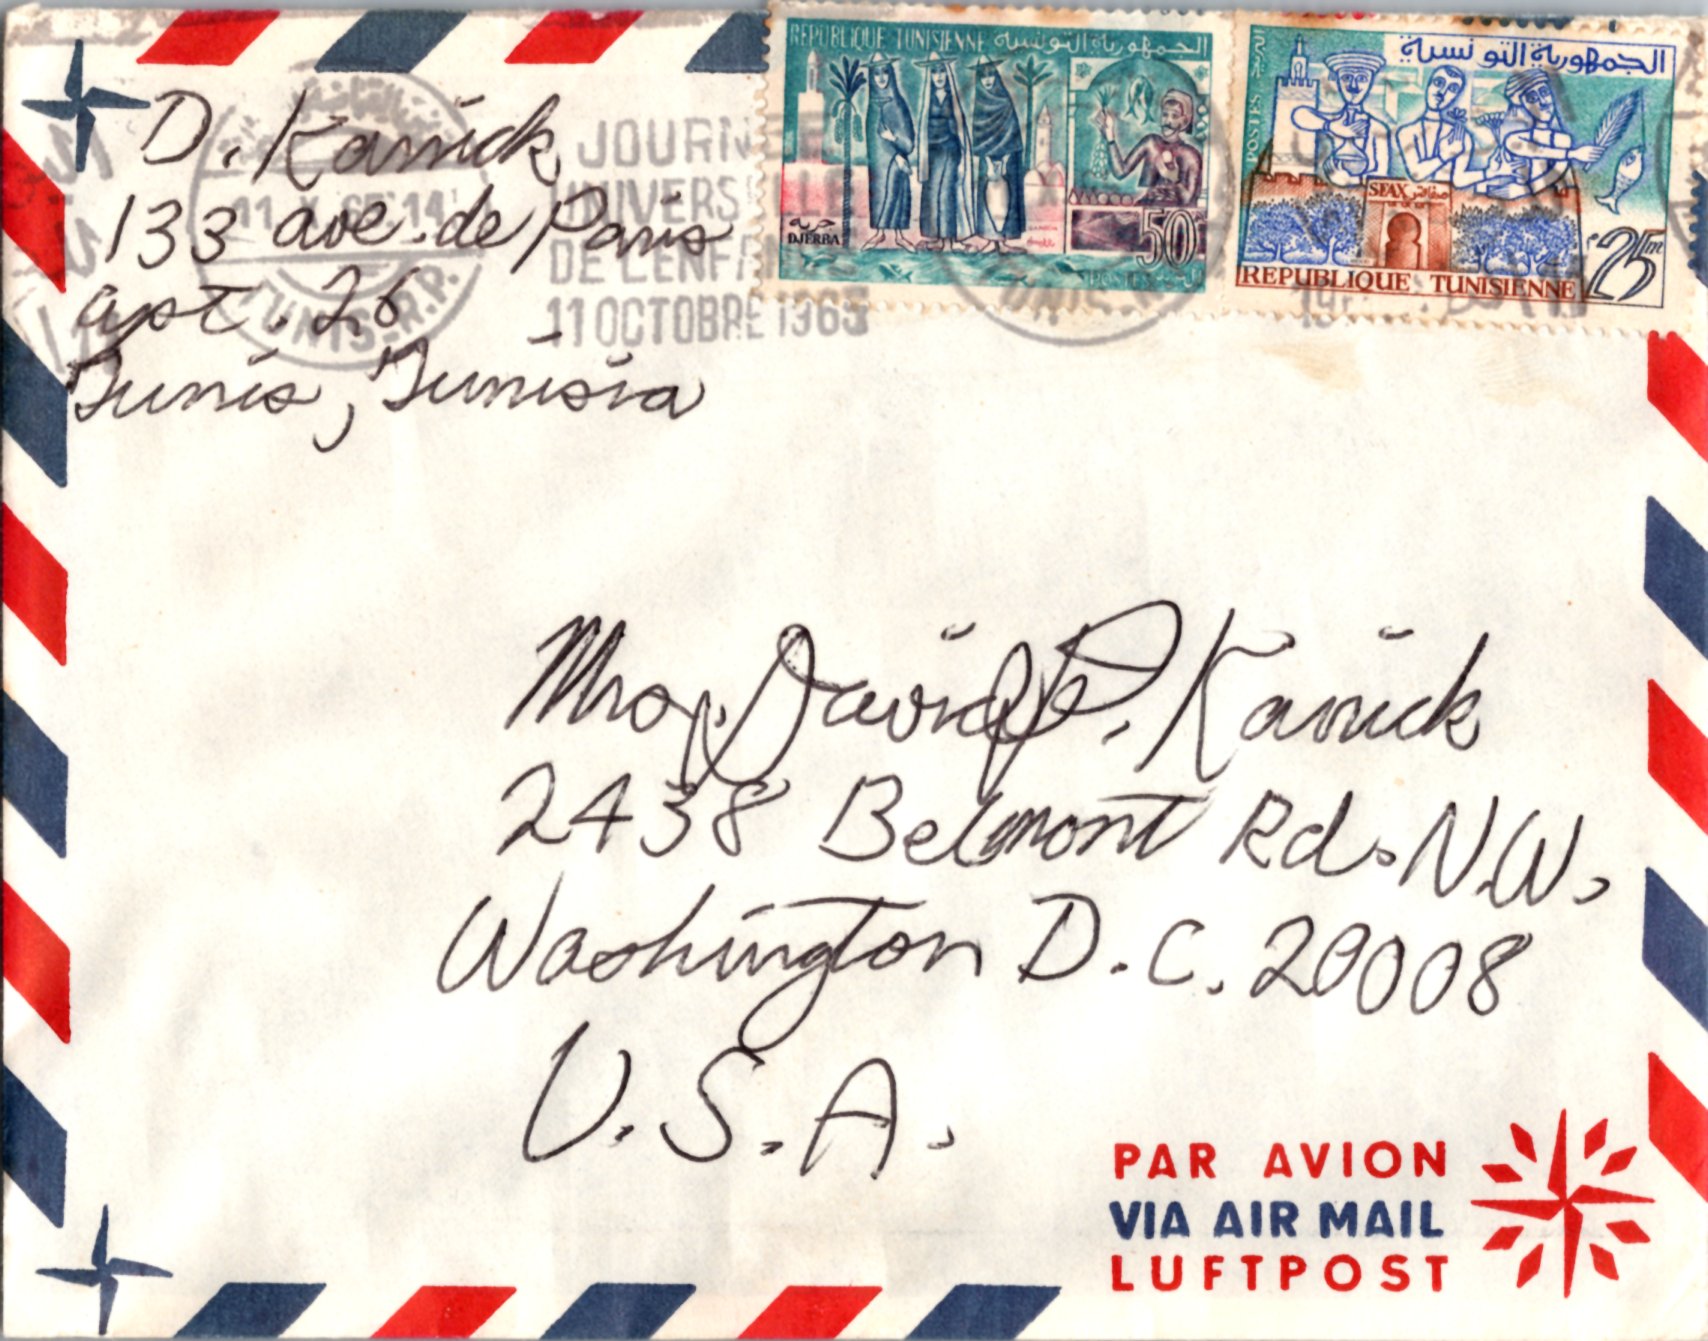 D. Karrick
133 ave. de Paris
apt. 26
Tunis, Tunisia
11 X 14
TUNIS-R.P.
JOURN
UNIVERSELLE
DE L'ENF
11 OCTOBRE 1965
REPUBLIQUE TUNISIENNE الجمهورية التونسية
جربة
DJERBA
50
POSTES
الجمهورية التونسية
POSTES
SFAX صفاقس
25m
REPUBLIQUE TUNISIENNE
Mrs. David P. Karrick
2438 Belmont Rd. N.W.
Washington D.C. 20008
U.S.A.
PAR AVION
VIA AIR MAIL
LUFTPOST